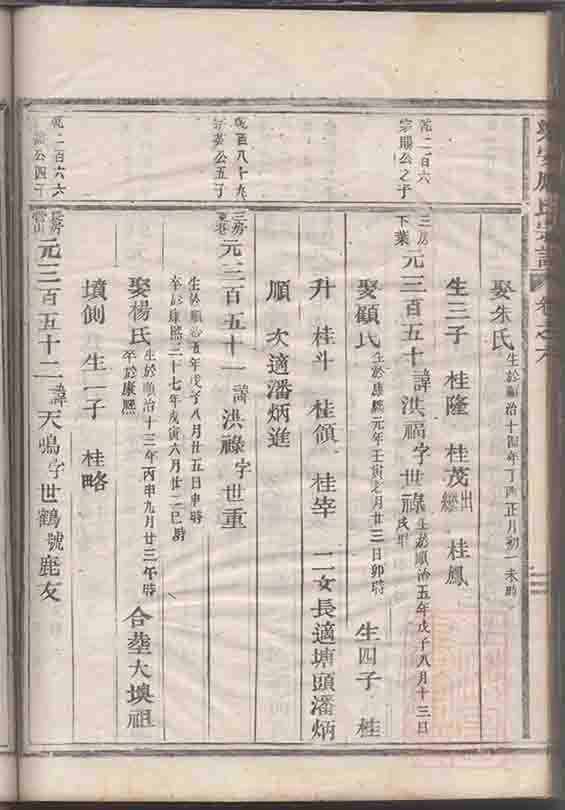 氏宗譜 卷之六
娶朱氏 生於順治十四年丁酉正月初一未時
生三子 桂隆 桂茂出繼 桂鳳
乾二百六 宗賜公之子
三房下葉 元三百五十 諱洪禍字世祿 生於順治五年戊子八月十三日戌時
娶顧氏 生於康熙元年壬寅七月廿三日卯時 生四子 桂
升 桂斗 桂領 桂宰 二女長適塘頭潘炳
順 次適潘炳進
乾百八十九 公五子
三房 元三百五十一 諱洪祿字世重
生於順治五年戊子八月廿五日申時
卒於康熙三十七年戊寅六月廿二巳時
娶楊氏 生於順治十三年丙申九月廿三午時 卒於康熙 合塟大墺祖
墳側 生一子 桂略
乾二百六六 公四子
房 元三百五十二 諱天鳴字世鶴號鹿友